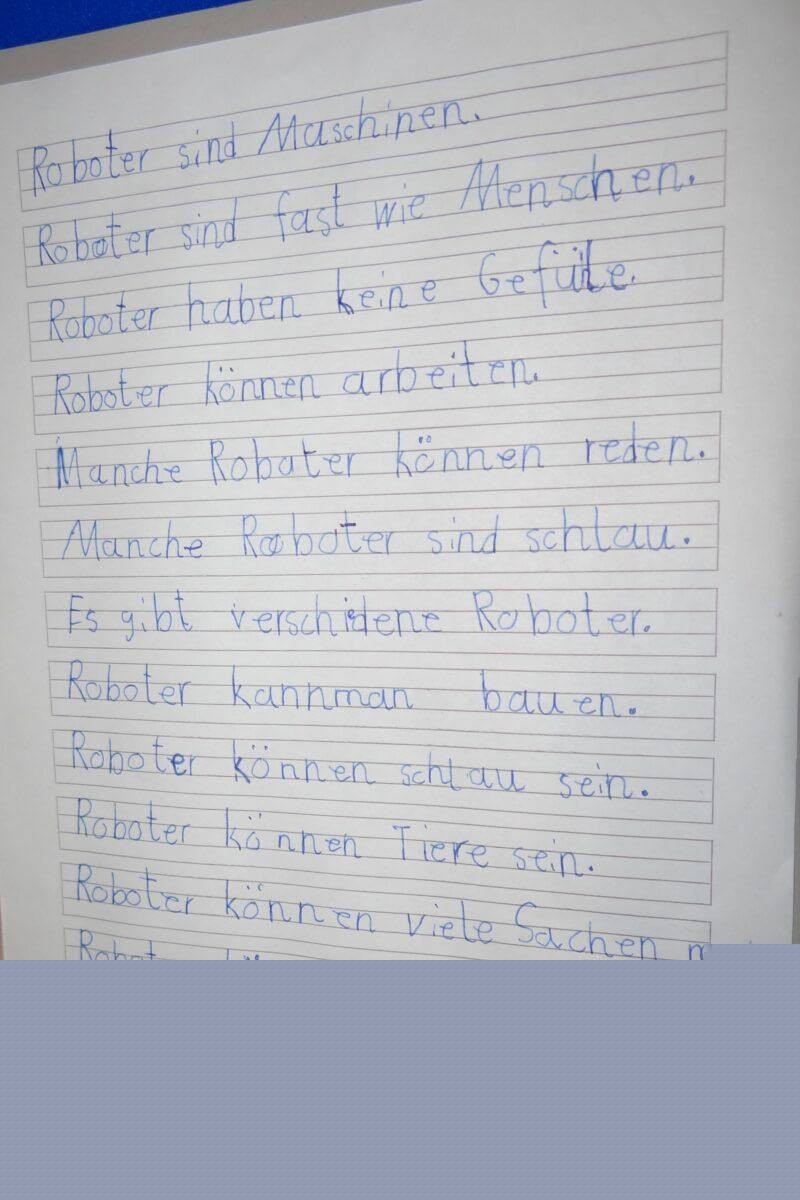 Roboter sind Maschinen.
Roboter sind fast wie Menschen.
Roboter haben keine Gefüle.
Roboter können arbeiten.
Manche Roboter können reden.
Manche Roboter sind schlau.
Es gibt verschidene Roboter.
Roboter kannman bauen.
Roboter können schlau sein.
Roboter können Tiere sein.
Roboter können viele Sachen